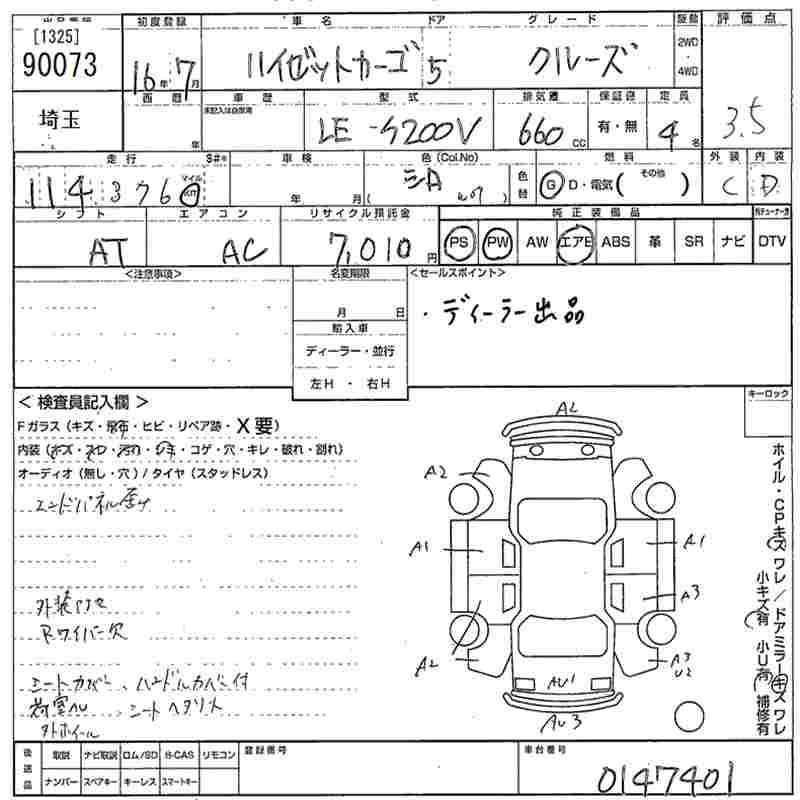 [1325]
90073
埼玉
初度登録
16年7月
車名
ハイゼットカーゴ
ドア
5
グレード
クルーズ
駆動
2WD
・
4WD
評価点
3.5
西暦
年
車歴
未記入は自家用
型式
LE-S200V
排気量
660cc
保証書
有・無
定員
4名
走行
114376
マイル
km
車検
年 月
色(Col.No)
色替
燃料
G D・電気( その他 )
外装
C
内装
D
シフト
AT
エアコン
AC
リサイクル預託金
7,010円
純正装備品
PS PW AW エアB ABS 革 SR ナビ DTV
<注意事項>
名変期限
月 日
輸入車
ディーラー・並行
左H ・ 右H
<セールスポイント>
・ディーラー出品
キーロック
<検査員記入欄>
Fガラス(キズ・飛石・ヒビ・リペア跡・X要)
内装(キズ・スレ・汚れ・シミ・コゲ・穴・キレ・破れ・割れ)
オーディオ(無し・穴)/タイヤ(スタッドレス)
エンドパネル歪ミ
外装
Rワイパー欠
シートカバー、ハンドルカバー付
荷室ヘリ、シートヘタリ大
外ホイール
A2
A2
A1
A1
A3
A2
A3
U2
AU1
AU3
ホイル・CPキズワレ/ドアミラーキズワレ
小キズ有 小U有 補修有
後送品
取説 ナビ取説 ロム/SD B-CAS リモコン
ナンバー スペアキー キーレス スマートキー
登録番号
車台番号
0147401